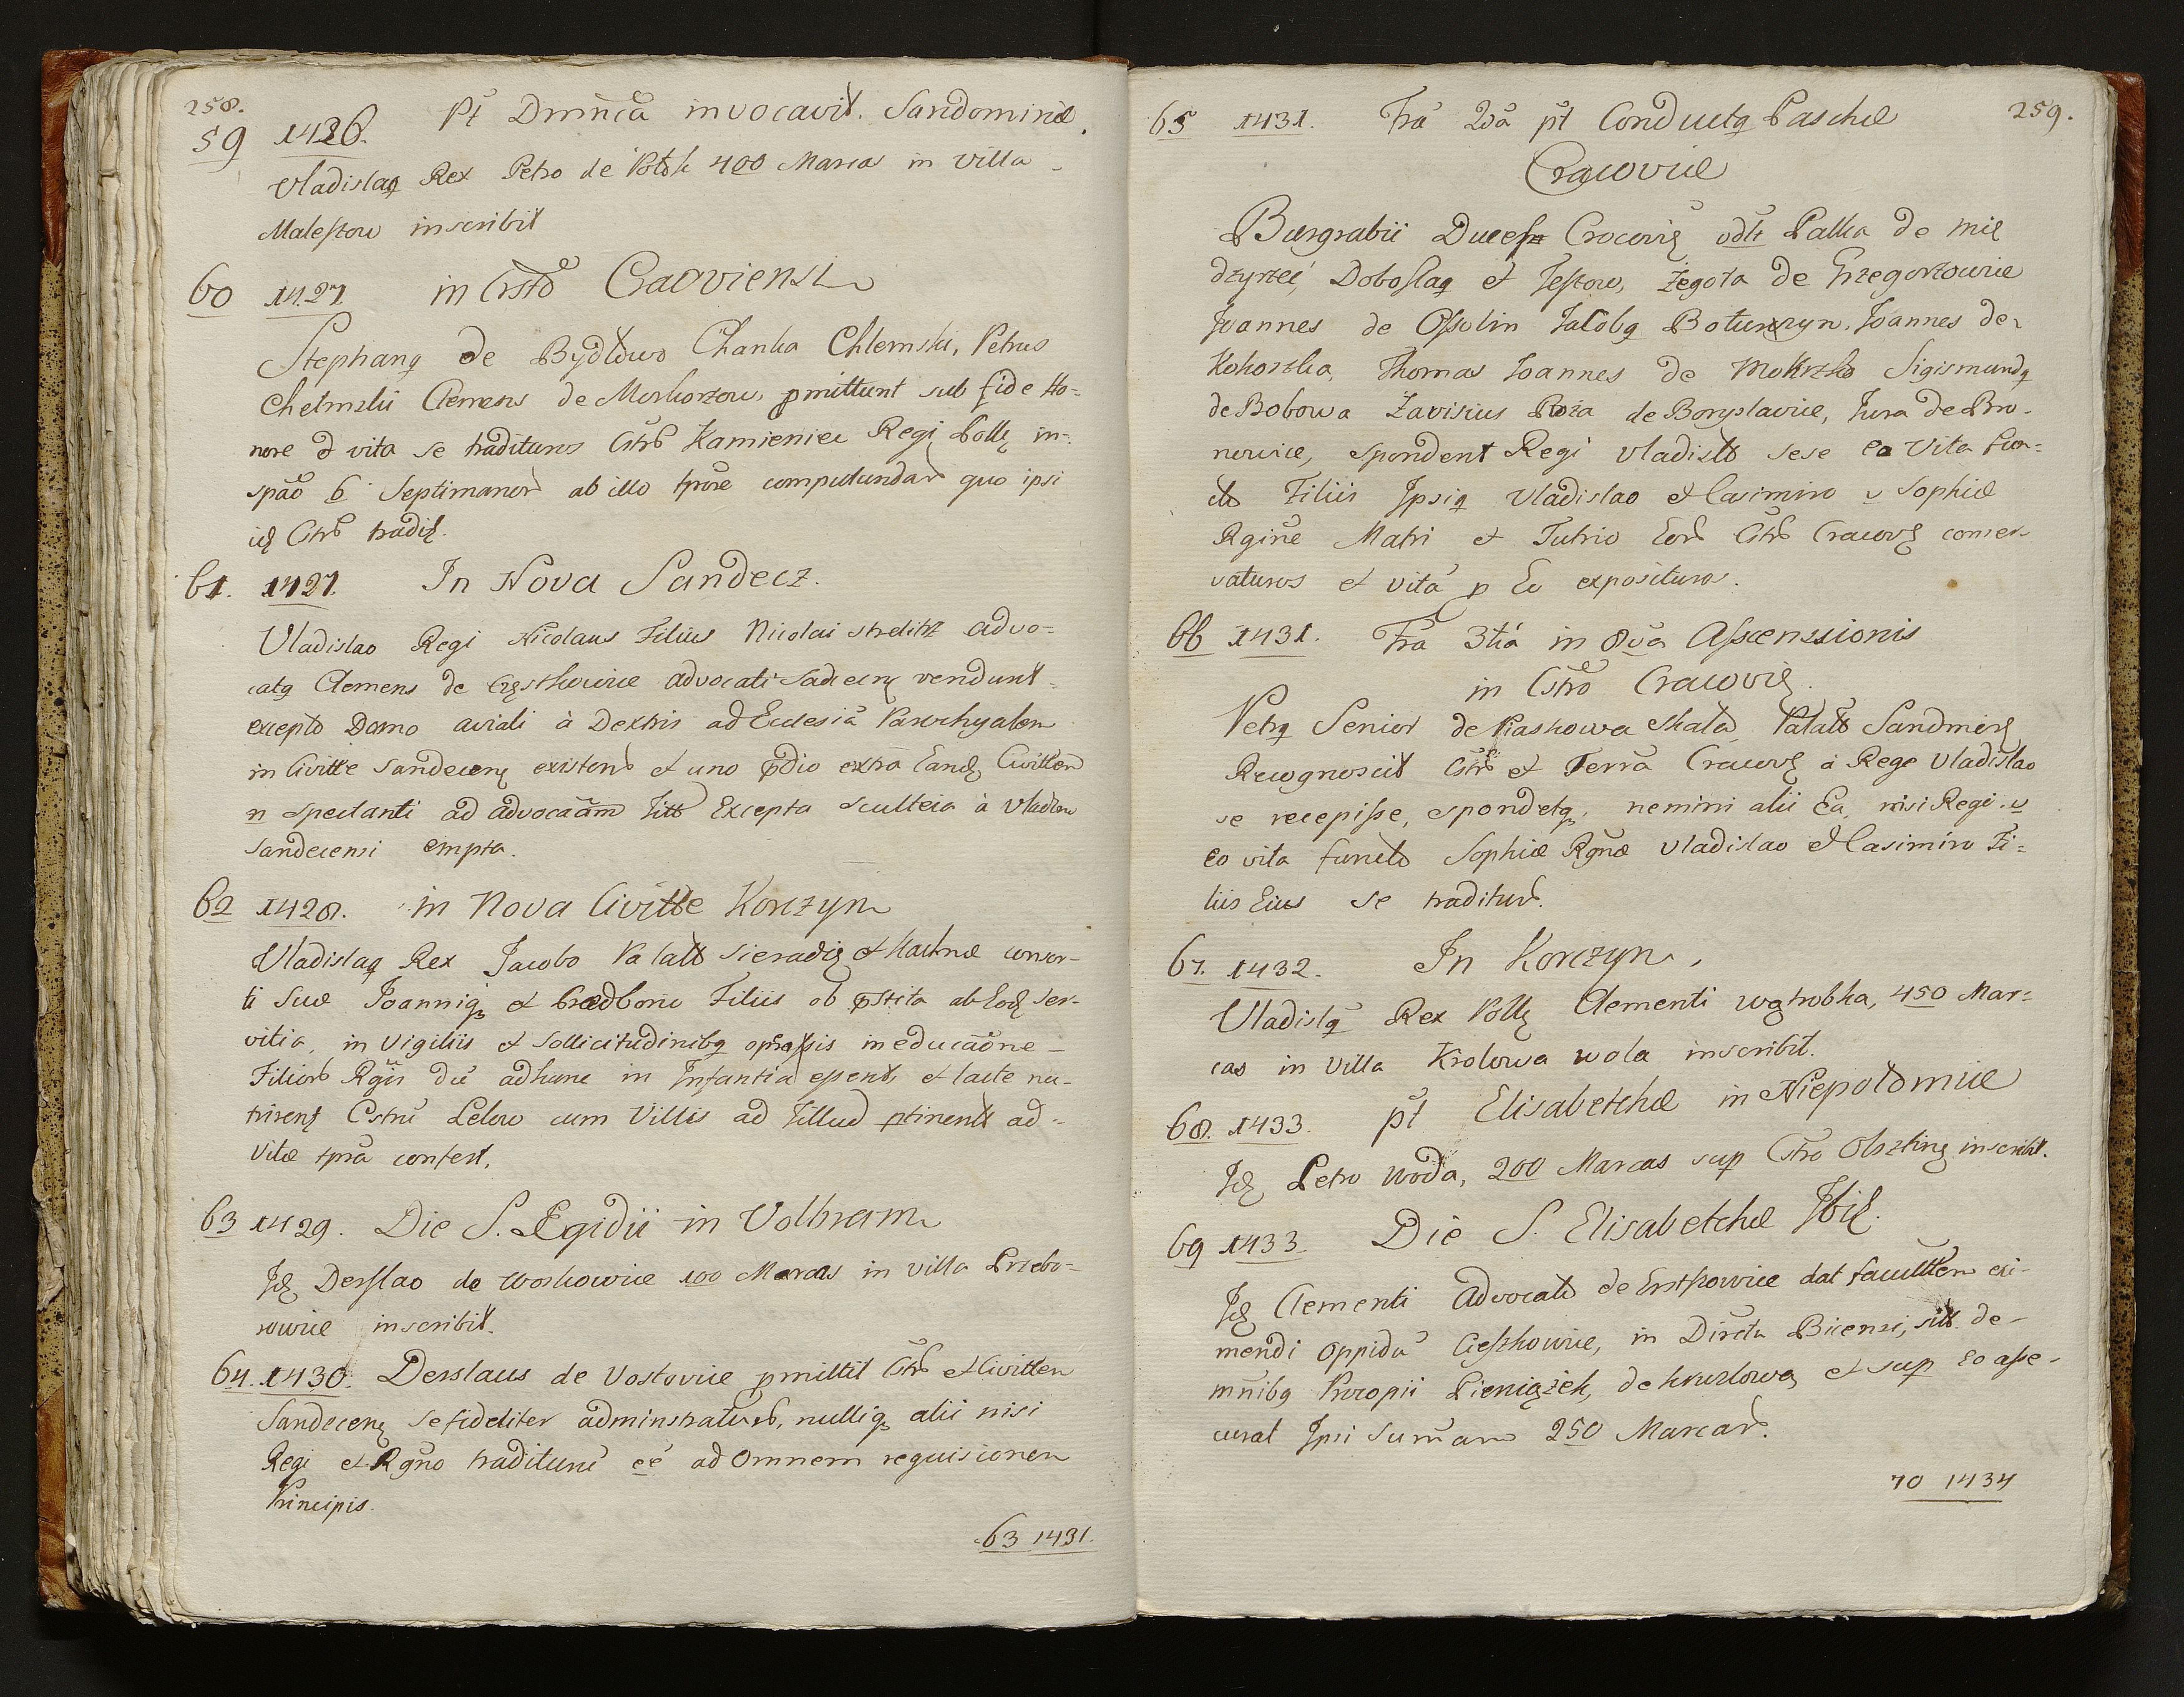 258.
59 1426. Pt Dmnca invocavit. Sandomiriæ.
Vladislaq Rex Petro de 400 Marcas in villa
Maleszow inscribit
60 1427. in Cstro Cracoviensi
Stephanq de Bydlowo Chanka Chlemski, Petrus
Chelmski Clemens de Moskorzow, pmittunt sub fide Ho-
nore et vita se tradituros Cstrb Kamieniec Regi Pollę in
spao 6 Septimanor ab illo tpore computandar quo ipsi
id Cstrb tradit.
61. 1427. In Nova Sandecz.
Vladislao Regi Nicolaus Filius Nicolai Streditz advo=
catq Clemens de advocati Sadecenę vendunt
excepto Domo aciali à Dextris ad Ecclesiã Parochyalem
in Civitte Sandecenę existens et uno pdio extra Eandę Civittem
n spectanti ad advocaãm Titt Excepta Sculteia à
Sandecensi empta.
62 1428. in Nova Civitte Korczyn
Vladislaq Rex Jacobo Palatt Sieradię et Hachnæ consor-
ti Suæ Joanniq et Predborio Filiis ob pstita ab Eodę ser-
vitia, in Vigiliis et Sollicitudinibq oprehssis in educaõne
Filiorb Rgis dũ adhunc in Infantia essent, et lacte nu-
trirent Cstrũ Lelow cum Villis ad Illud ptinentt ad
Vitæ tpra confert.
63 1429. Die S. Egidii in Volbram
Idę Derslao de Woskowicę 100 Marcas in villa Przebo-
rowicę inscribit.
64. 1430. Derslaus de Vostovicę pmittit Cstrb et Civittem
Sandecenę se fideliter adminstraturb, nulliq alii nisi
Regi et Rgno traditurũ eẽ ad Omnem requisionem
Principis.
63 1431.
259.
65 1431. Fra 2da pt Conductq Paschæ
Cracoviæ
Burgrabii Duces Crocovię vdlt Pałka de Mię
dzyrzec, Doboslaq et Testow, Żegota de Grzegorzowice
Joannes de Ossolin Jacobq Boturzyn, Joannes de
Kokoszka, Thomas Joannes de Mokrzko Sigismundq
de Bobowa Zavisius Roża de Boryslavice, Jura de Bro-
nowice, spondent Regi Vladislb sese Eo Vita func-
to Filiis Ipsiq Vladislao et Casimiro v Sophiæ
Rginæ Matri et Tutrici Eorb Cstrb Cracovę conser-
vaturos et vitã p Eo exposituros.
66 1431. Fra 3tia in 8va Assenssionis
in Cstro Cracovię.
Petrq Senior de Piaskowa Skała, Palatt Sandmerę
Recognoscit Cstrb et Terrã Cracovę à Rege Vladislao
se recepisse, spondetq, nemini alii Ea, nisi Regi v
eo vita functo Sophiæ Rgnæ Vladislao et Casimiro Fi=
liis Eius se traditurb.
67. 1432. In Korczyn.
Vladislq Rex Pollę Clementi Wątrobka, 450 Mar=
cas in Villa Krolowa wola inscribit.
68. 1433. pt Elisabethæ in Niepołomicę
Idę Petro Woda, 200 Marcas sup Cstro Olsztinę inscribit.
69 1433. Die S. Elisabethæ Ibię.
Idę Clementi Advocato de dat facultttem exi-
mendi Oppidũ Cieszkowicę, in Distctu Bicensi, sitt de
mñibq Procopii Pieniążek, de Kruzlowa et sup eo asse-
curat Ipsi Sumam 250 Marcarb.
70 1434